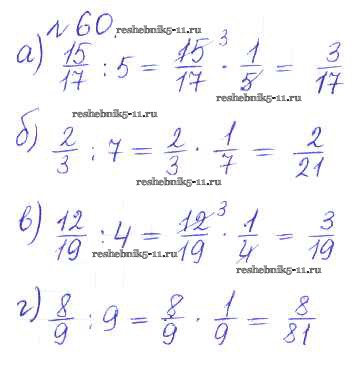 № 60.
reshebnik5-11.ru
а) 15/17 : 5 = 15/17 ³ · 1/5 = 3/17
reshebnik5-11.ru
reshebnik5-11.ru
б) 2/3 : 7 = 2/3 · 1/7 = 2/21
reshebnik5-11.ru
в) 12/19 : 4 = 12/19 ³ · 1/4 = 3/19
reshebnik5-11.ru
reshebnik5-11.ru
г) 8/9 : 9 = 8/9 · 1/9 = 8/81